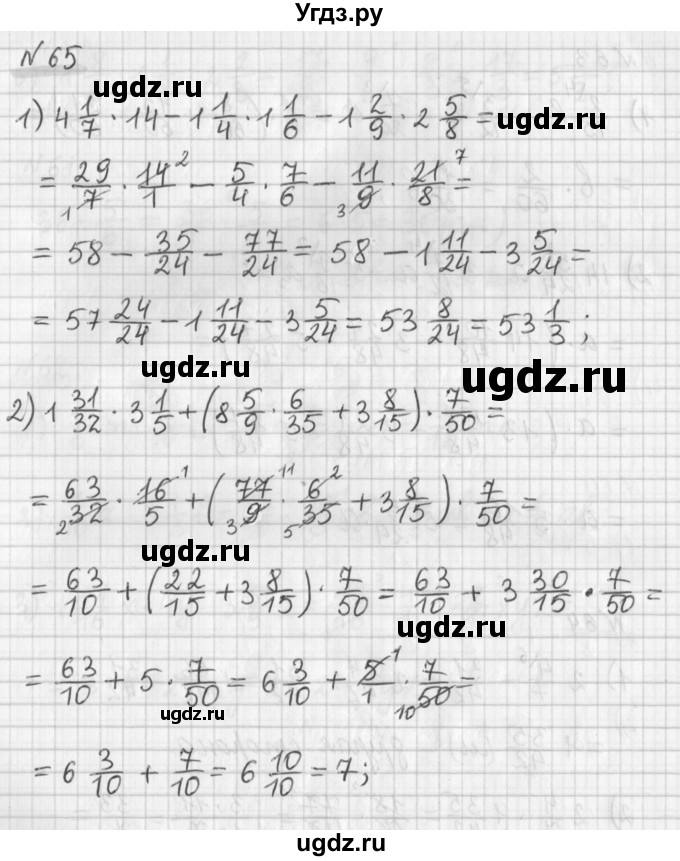 Угдз.ру
№ 65
ugdz.ru
1) 4 1/7 · 14 − 1 1/4 · 1 1/6 − 1 2/9 · 2 5/8 =
= 29/7 · 14/1 − 5/4 · 7/6 − 11/9 · 21/8 =
1 2 3 7
ugdz.ru
= 58 − 35/24 − 77/24 = 58 − 1 11/24 − 3 5/24 =
= 57 24/24 − 1 11/24 − 3 5/24 = 53 8/24 = 53 1/3 ;
ugdz.ru
ugdz.ru
2) 1 31/32 · 3 1/5 + (8 5/9 · 6/35 + 3 8/15) · 7/50 =
= 63/32 · 16/5 + (77/9 · 6/35 + 3 8/15) · 7/50 =
2 1 3 11 5 2
ugdz.ru
= 63/10 + (22/15 + 3 8/15) · 7/50 = 63/10 + 3 30/15 · 7/50 =
ugdz.ru
= 63/10 + 5 · 7/50 = 6 3/10 + 5/1 · 7/50 =
1 10
ugdz.ru
= 6 3/10 + 7/10 = 6 10/10 = 7;
ugdz.ru